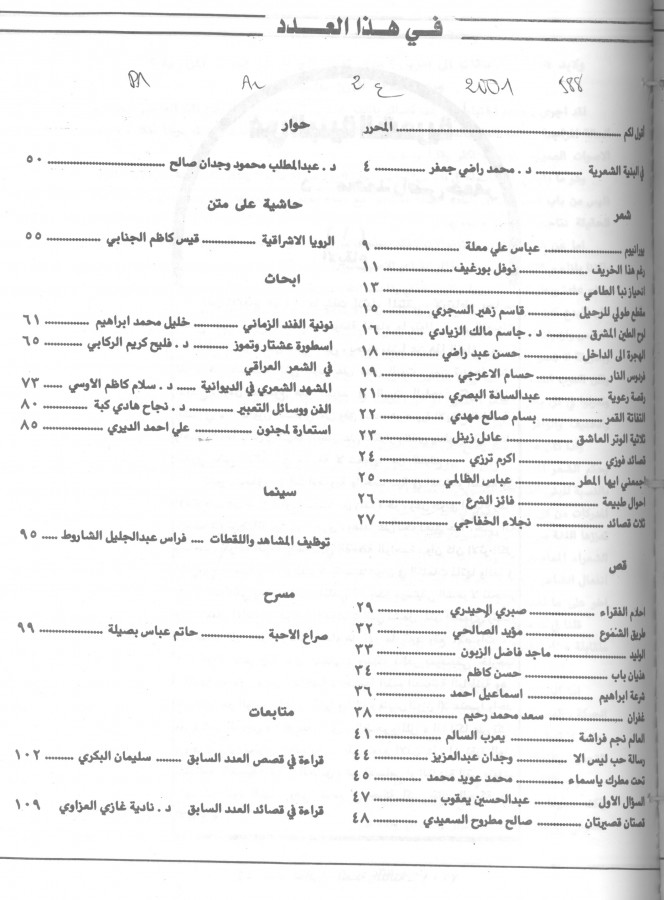 في هذا العدد
2001
أقول لكم ........ المحرر
في البنية الشعرية ........ د . محمد راضي جعفر ........ ٤
شعر
يورانيوم ........ عباس علي معلة ........ ٩
رغم هذا الخريف ........ نوفل بورغيف ........ ١١
انحياز نبأ الطامي ........ ١٣
مقطع طولي للرحيل ........ قاسم زهير السجري ........ ١٥
لوح الطين المشرق ........ د . جاسم مالك الزيادي ........ ١٦
الهجرة الى الداخل ........ حسن عبد راضي ........ ١٨
فردوس النار ........ حسام الاعرجي ........ ١٩
رقصة رعوية ........ عبدالسادة البصري ........ ٢١
التفاتة القمر ........ بسام صالح مهدي ........ ٢٢
ثلاثية الوتر العاشق ........ عادل زينل ........ ٢٣
قصائد فوزي ........ اكرم ترزي ........ ٢٤
اجمعني ايها المطر ........ عباس الظالمي ........ ٢٥
احوال طبيعة ........ فائز الشرع ........ ٢٦
ثلاث قصائد ........ نجلاء الخفاجي ........ ٢٧
قص
احلام الفقراء ........ صبري الحيدري ........ ٢٩
طريق الشموع ........ مؤيد الصالحي ........ ٣٢
الوليد ........ ماجد فاضل الزبون ........ ٣٣
هذيان باب ........ حسن كاظم ........ ٣٤
شرعة ابراهيم ........ اسماعيل احمد ........ ٣٦
غفران ........ سعد محمد رحيم ........ ٣٨
العالم نجم فراشة ........ يعرب السالم ........ ٤١
رسالة حب ليس الا ........ وجدان عبدالعزيز ........ ٤٤
تحت مطرك ياسماء ........ محمد عويد محمد ........ ٤٥
السؤال الأول ........ عبدالحسين يعقوب ........ ٤٧
قصتان قصيرتان ........ صالح مطروح السعيدي ........ ٤٨
حوار
د . عبدالمطلب محمود وجدان صالح ........ ٥٠
حاشية على متن
الرويا الاشراقية ........ قيس كاظم الجنابي ........ ٥٥
ابحاث
نونية الفند الزماني ........ خليل محمد ابراهيم ........ ٦١
اسطورة عشتار وتموز ........ د . فليح كريم الركابي ........ ٦٥
في الشعر العراقي
المشهد الشعري في الديوانية ........ د . سلام كاظم الأوسي ........ ٧٣
الفن ووسائل التعبير ........ د . نجاح هادي كبة ........ ٨٠
استعارة لمجنون ........ علي احمد الديري ........ ٨٥
سينما
توظيف المشاهد واللقطات ........ فراس عبدالجليل الشاروط ........ ٩٥
مسرح
صراع الأحبة ........ حاتم عباس بصيلة ........ ٩٩
متابعات
قراءة في قصص العدد السابق ........ سليمان البكري ........ ١٠٢
قراءة في قصائد العدد السابق د . نادية غازي العزاوي ١٠٩